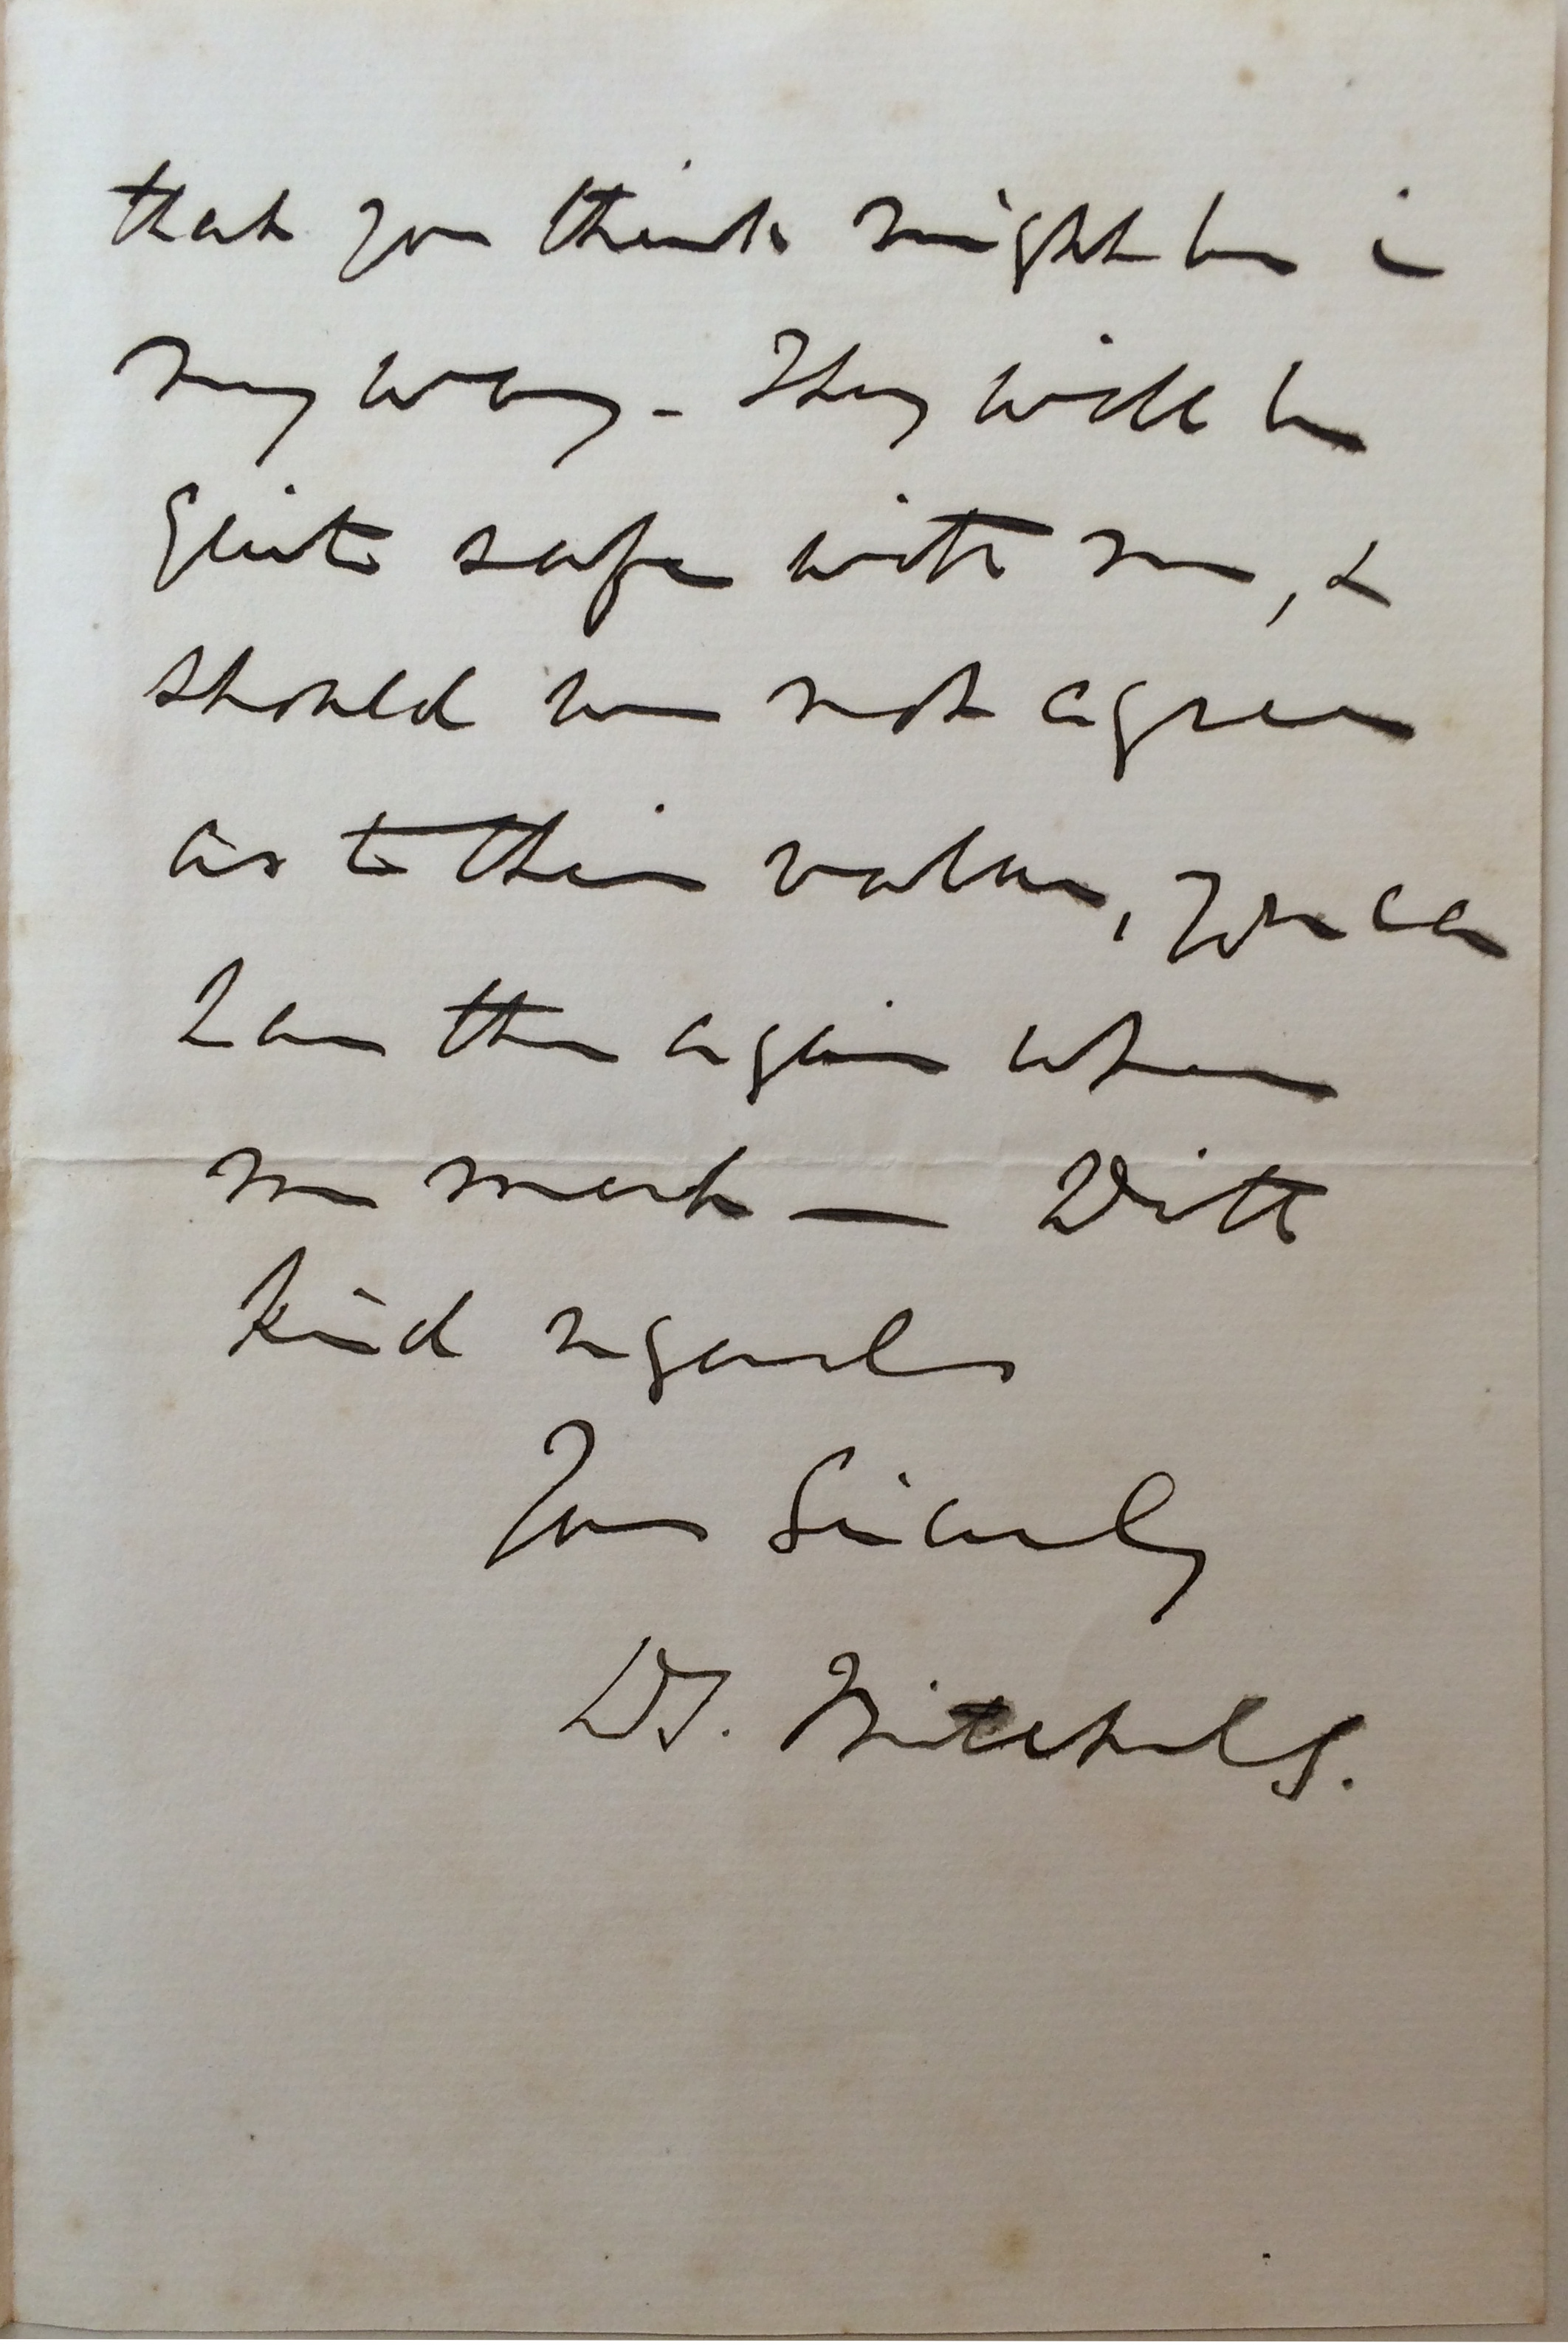 that you think might be in
my way - They will be
quite safe with me, &
should we not agree
as to their value, you can
have them again when
we meet — With
kind regards
Yours Sincerely
Mitchell